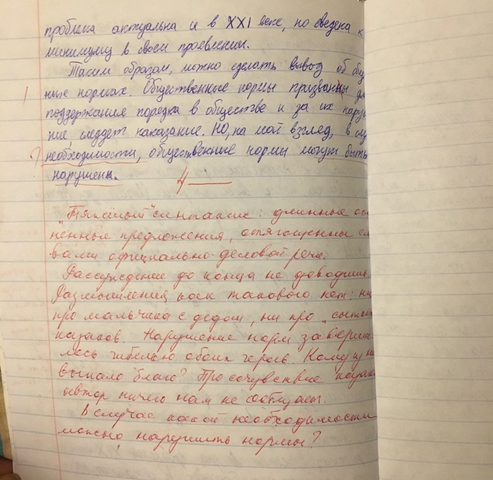 проблема актуальна и в XXI веке, но сведена к
минимуму в своем проявлении.
Таким образом, можно сделать вывод об общ
ных нормах. Общественные нормы призваны для
поддержания порядка в обществе и за их наруше
ние следует наказание. Но, на мой взгляд, в слу
необходимости, общественные нормы могут быть
нарушены.
4
"Тяжелый" синтаксис: длинные осл
ненные предложения, отягощенные сл
вами официально-деловой речи.
Рассуждение до конца не доводишь.
Размышления как такового нет: ни
про мальчика с дедом, ни про "сытых"
казаков. Нарушение норм заверши
лось гибелью обоих героев. Кому ж
выпало "благо"? Про сочувствие казака
автор ничего нам не сообщал.
В случае какой необходимости
можно нарушить нормы?